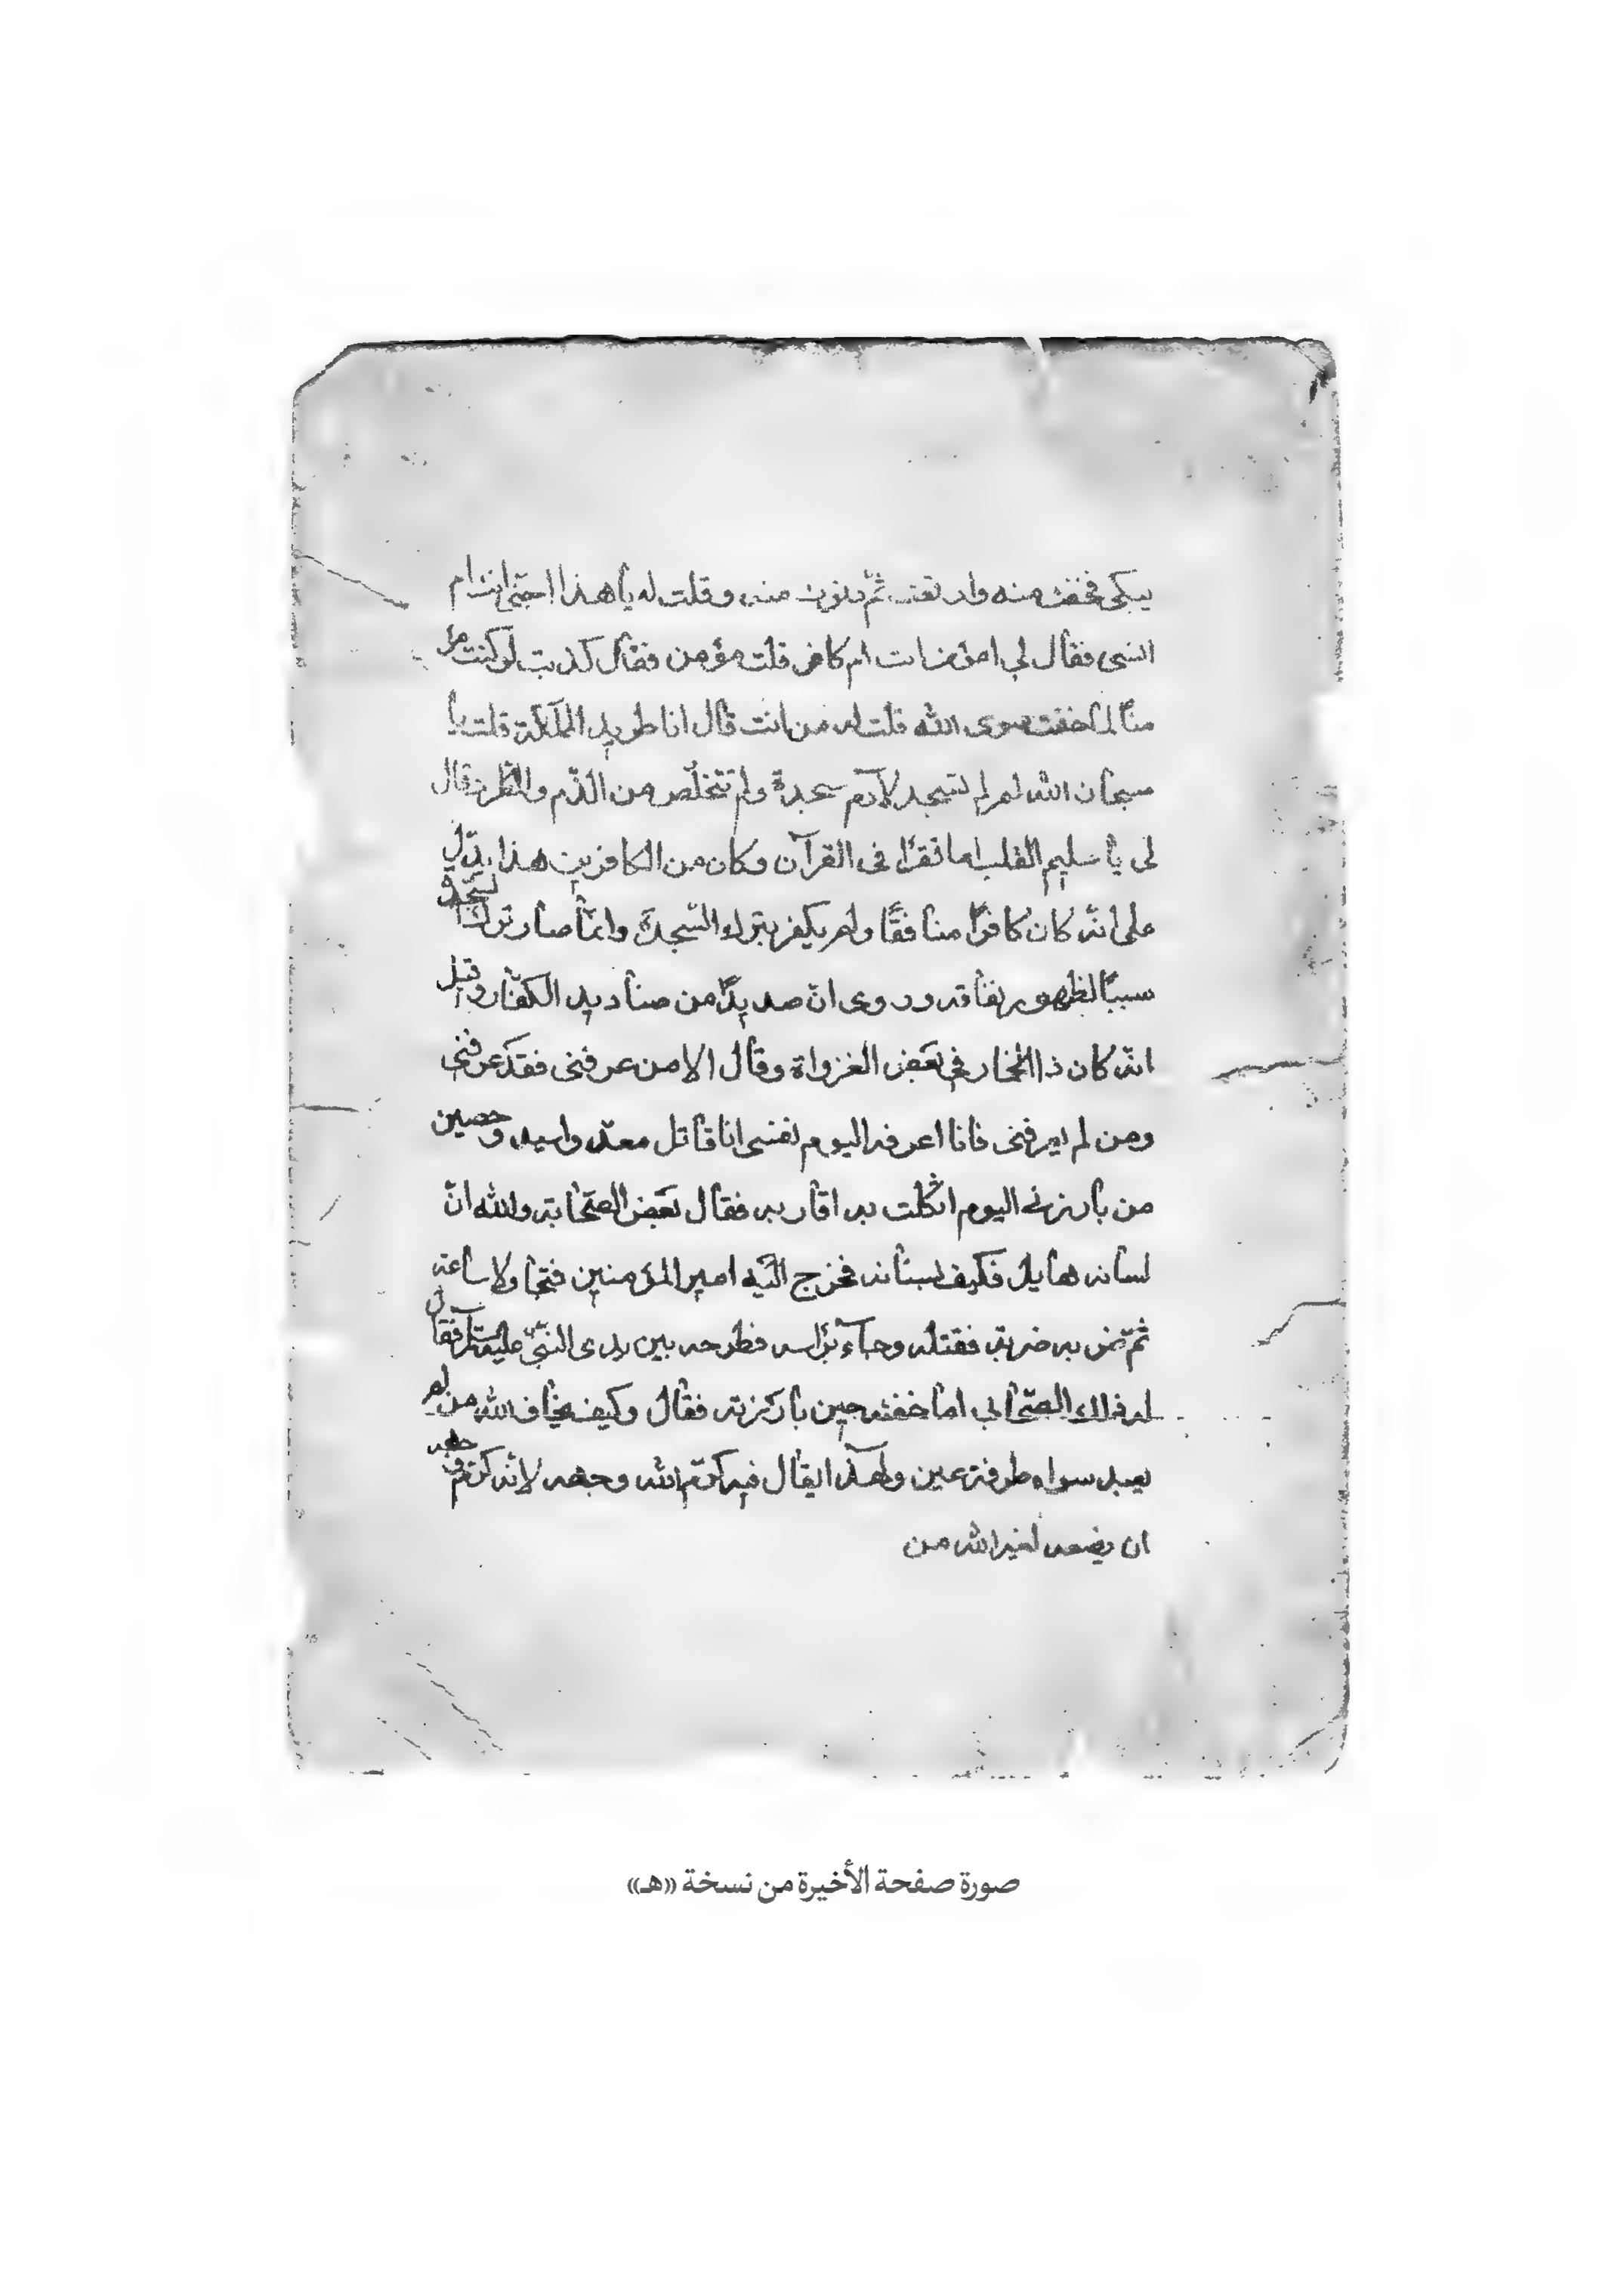 يبكى فخفت منه وارتعت ثمّ دنوت منه وقلت له يا هذا اجنّى انت ام
انسى فقال لى امؤمن انت ام كافر قلت مؤمن فقال كذبت لو كنت مؤ
منًا لما خفت سوى الله قلت له من انت قال انا طريد الملٰئكة قلت يا
سبحان الله لم لم تسجد لآدم سجدة ولم تتخلّص من الذّم والطّرد قال
لى يا سليم القلب اما تقرأ فى القرآن وكان من الكافرين هذا يدّل
على انّه كان كافرًا منافقًا ولم يكفر بترك السّجدة وانّما صار ترك السّجود
سببًا لظهور نفاقه وروى انّ صديدًا من صناديد الكفّار وقيل
انّه كان ذا الخمار فى بعض الغزواة وقال الا من عرفنى فقد عرفنى
ومن لم يعرفنى فانا اعرفه اليوم نفسى انا قاتل معدّ واسيد وحصين
من بارزنى اليوم اثكلت به اقاربه فقال بعض الصّحابة والله انّ
لسانه هايل فكيف بسنانه فخرج اليه امير المؤمنين فتجاولا ساعة
ثمّ ضربه ضربة فقتله وجآء برأسه فطرحه بين يدى النّبىّ فقال
له ذلك الصّحابى اما خفته حين بارزته فقال وكيف يخاف الله من لم
يعبد سواه طرفة عين ولهذا يقال فيه كرّم الله وجهه لانّه كرّم وجهه
ان يضعه لغير الله من
صورة صفحة الأخيرة من نسخة «هـ»